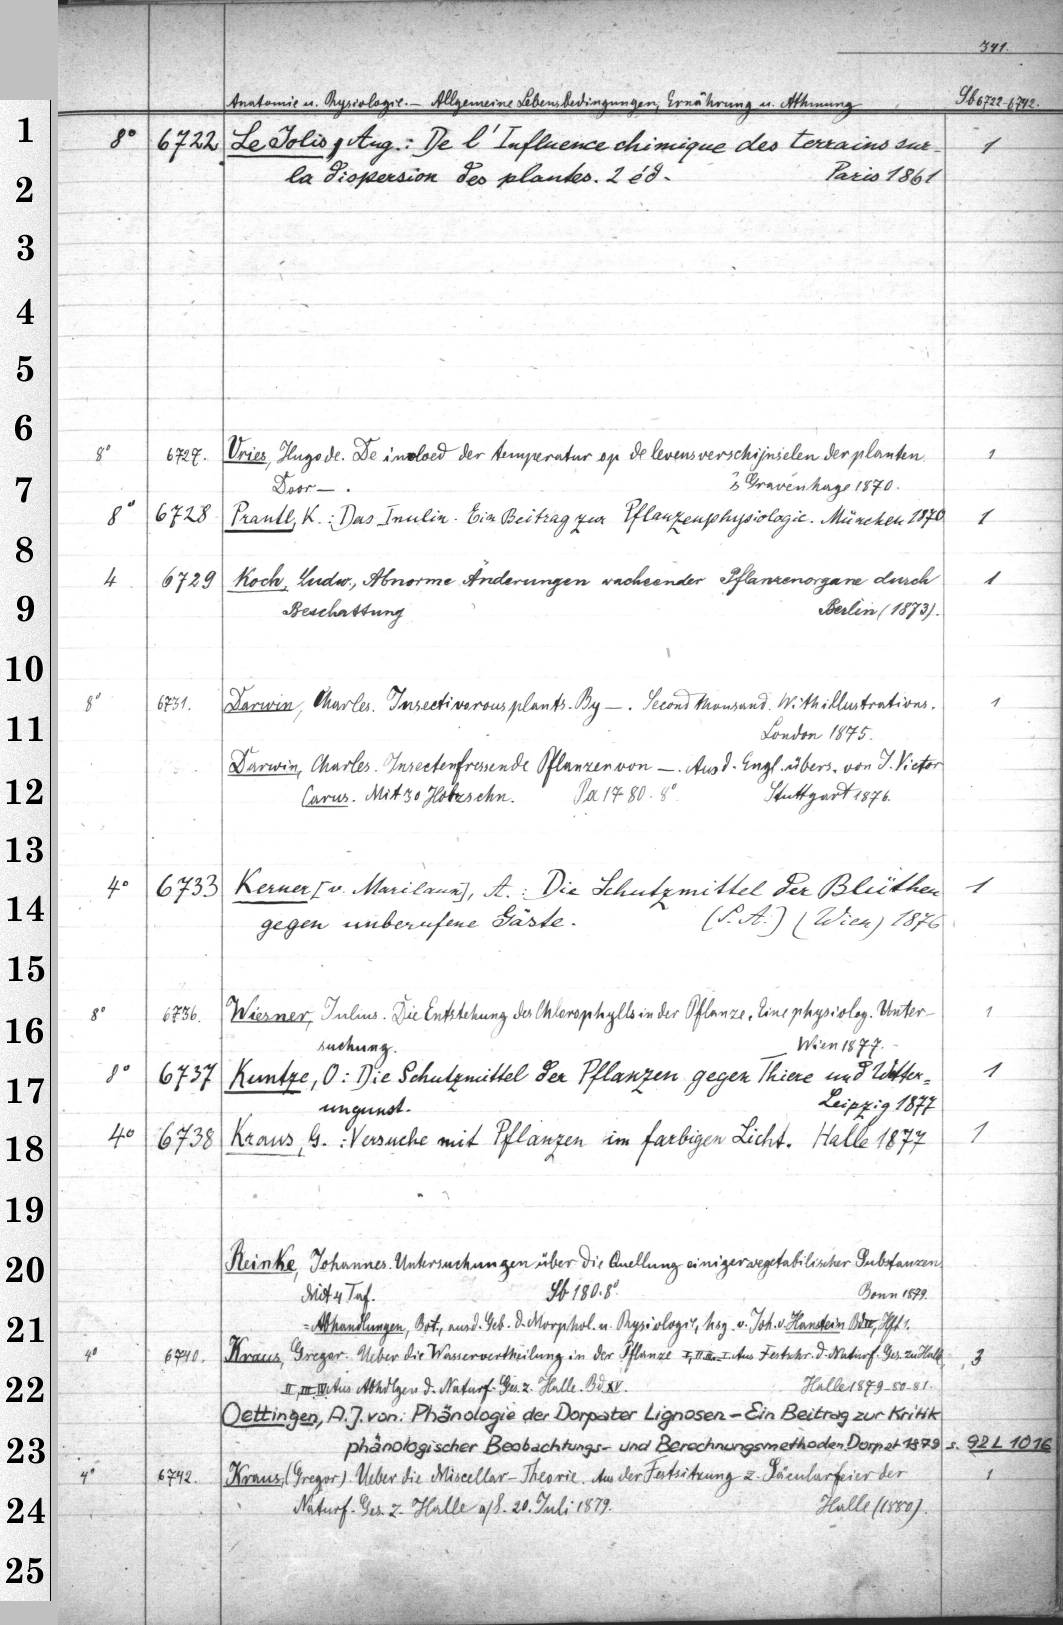 341.
Anatomie u. Physiologie. — Allgemeine Lebensbedingungen, Ernährung u. Athmung Sb 6722-6742.
1
8° 6722 Le Jolis, Aug.: De l'Influence chimique des terrains sur- 1
2
la dispersion des plantes. 2 éd. Paris 1861
3
4
5
6
8° 6727. Vries, Hugo de. De invloed der temperatur op de levensverschijnselen der planten 1
7
Door —. 's Gravenhage 1870.
8° 6728 Prantl, K.: Das Inulin. Ein Beitrag zur Pflanzenphysiologie. München 1870 1
8
4 6729 Koch, Ludw., Abnorme Änderungen wachsender Pflanzenorgane durch 1
9
Beschattung Berlin (1873).
10
8° 6731. Darwin, Charles. Insectivorous plants. By —. Second thousand. With illustrations. 1
11
London 1875.
Darwin, Charles. Insectenfressende Pflanzen von —. Aus d. Engl. übers. von J. Victor
12
Carus. Mit 30 Holzschn. Pa 1780. 8° Stuttgart 1876.
13
4° 6733 Kerner [v. Marilaun], A.: Die Schutzmittel der Blüthen 1
14
gegen unberufene Gäste. (S. A.) (Wien) 1876
15
8° 6736. Wiesner, Julius. Die Entstehung des Chlorophylls in der Pflanze. Eine physiolog. Unter- 1
16
suchung. Wien 1877.
8° 6737 Kuntze, O: Die Schutzmittel der Pflanzen gegen Thiere und Wetter- 1
17
ungunst. Leipzig 1877
4° 6738 Kraus, G.: Versuche mit Pflanzen im farbigen Licht. Halle 1877 1
18
19
Reinke, Johannes. Untersuchungen über die Quellung einiger vegetabilischer Substanzen
20
Mit 4 Taf. Sb 180. 8° Bonn 1879.
= Abhandlungen, Bot., aus d. Geb. d. Morphol. u. Physiologie, hsg. v. Joh. v. Hanstein Bd IV, Hft 1.
21
4° 6740. Kraus, Gregor. Ueber die Wasservertheilung in der Pflanze I, II, III. I. Aus Festschr. d. Naturf. Ges. zu Halle 3
22
II, III, IV. Aus Abhdlgen d. Naturf. Ges. z. Halle. Bd XV. Halle 1879-80-81.
Oettingen, A.J. von: Phänologie der Dorpater Lignosen – Ein Beitrag zur Kritik
23
phänologischer Beobachtungs- und Berechnungsmethoden. Dorpat 1879 s. 92 L 1016
4° 6742. Kraus, (Gregor). Ueber die Miscellar-Theorie. Aus der Festsitzung z. Säcularfeier der 1
24
Naturf. Ges. z. Halle a/S. 20. Juli 1879. Halle (1880).
25